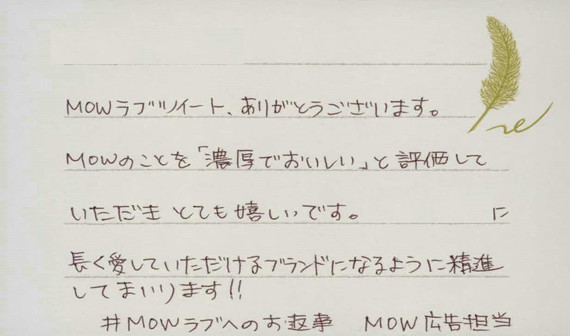 MOWラブツイート、ありがとうございます。
MOWのことを「濃厚でおいしい」と評価して
いただき とても嬉しいです。 に
長く愛していただけるブランドになるように精進
してまいります!!
#MOWラブへのお返事 MOW広告担当